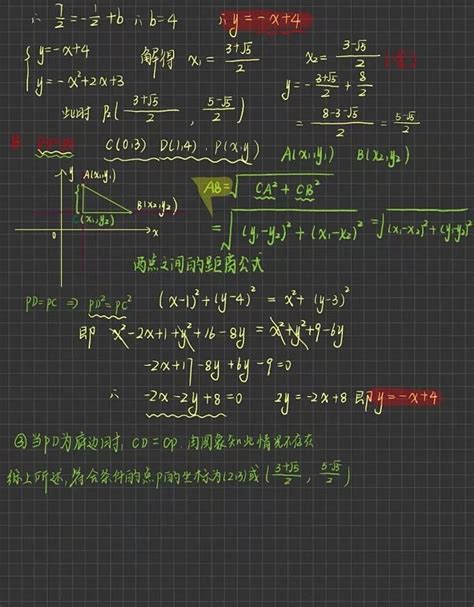 ∴ 7/2 = -1/2 + b ∴ b=4 ∴ y = -x+4
{ y=-x+4 解得 x₁ = (3+√5)/2 x₂ = (3-√5)/2
y = -x²+2x+3 y = -(3+√5)/2 + 8/2
此时 P₂( (3+√5)/2 , (5-√5)/2 ) = (8-3-√5)/2 = (5-√5)/2
C(0,3) D(1,4) . P(x,y) A(x₁,y₁) B(x₂,y₂)
y A(x₁,y₁) AB = √(CA² + CB²)
B(x₂,y₂)
(x₁,y₂) = √((y₁-y₂)² + (x₁-x₂)²) = √((x₁-x₂)² + (y₁-y₂)²)
0 x
两点之间的距离公式
PD=PC ⇒ PD²=PC² (x-1)² + (y-4)² = x² + (y-3)²
即 x²-2x+1+y²+16-8y = x²+y²+9-6y
-2x+17-8y+6y-9=0
∴ -2x-2y+8=0 2y=-2x+8 即 y=-x+4
③当PD为底边时, CD=CP 由图象知此情况不存在
综上所述, 符合条件的点P的坐标为(2,3)或( (3+√5)/2 , (5-√5)/2 )